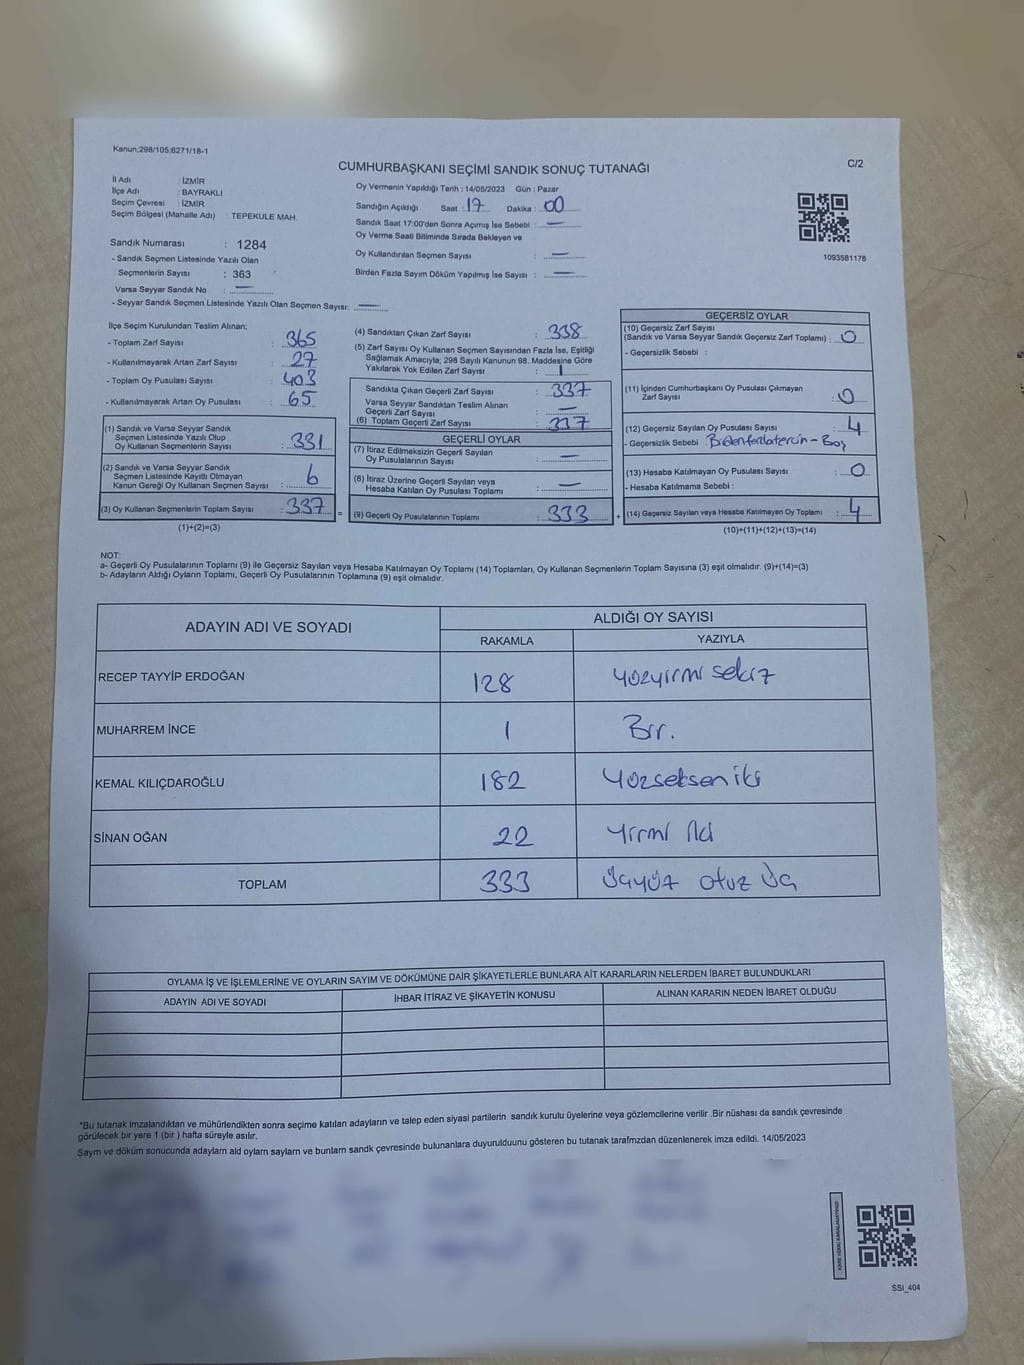 Kanun:298/105;6271/18-1
CUMHURBAŞKANI SEÇİMİ SANDIK SONUÇ TUTANAĞI
C/2
İl Adı : İZMİR
İlçe Adı : BAYRAKLI
Seçim Çevresi : İZMİR
Seçim Bölgesi (Mahalle Adı) : TEPEKULE MAH.
Sandık Numarası : 1284
- Sandık Seçmen Listesinde Yazılı Olan
Seçmenlerin Sayısı : 363
Varsa Seyyar Sandık No : —
- Seyyar Sandık Seçmen Listesinde Yazılı Olan Seçmen Sayısı: —
Oy Vermenin Yapıldığı Tarih : 14/05/2023 Gün : Pazar
Sandığın Açıldığı Saat : 17 Dakika : 00
Sandık Saat 17:00'den Sonra Açımış İse Sebebi : —
Oy Verme Saati Bitiminde Sırada Bekleyen ve
Oy Kullandırılan Seçmen Sayısı : —
Birden Fazla Sayım Döküm Yapılmış İse Sayısı : —
1093581178
İlçe Seçim Kurulundan Teslim Alınan:
- Toplam Zarf Sayısı : 365
- Kullanılmayarak Artan Zarf Sayısı : 27
- Toplam Oy Pusulası Sayısı : 403
- Kullanılmayarak Artan Oy Pusulası : 65
(1) Sandık ve Varsa Seyyar Sandık
Seçmen Listesinde Yazılı Olup
Oy Kullanan Seçmenlerin Sayısı : 331
(2) Sandık ve Varsa Seyyar Sandık
Seçmen Listesinde Kayıtlı Olmayan
Kanun Gereği Oy Kullanan Seçmen Sayısı : 6
(3) Oy Kullanan Seçmenlerin Toplam Sayısı : 337
(1)+(2)=(3)
(4) Sandıktan Çıkan Zarf Sayısı : 338
(5) Zarf Sayısı Oy Kullanan Seçmen Sayısından Fazla İse, Eşitliği
Sağlamak Amacıyla; 298 Sayılı Kanunun 98. Maddesine Göre
Yakılarak Yok Edilen Zarf Sayısı : 1
Sandıkta Çıkan Geçerli Zarf Sayısı : 337
Varsa Seyyar Sandıktan Teslim Alınan
Geçerli Zarf Sayısı : —
(6) Toplam Geçerli Zarf Sayısı : 337
GEÇERLİ OYLAR
(7) İtiraz Edilmeksizin Geçerli Sayılan
Oy Pusulalarının Sayısı : —
(8) İtiraz Üzerine Geçerli Sayılan veya
Hesaba Katılan Oy Pusulası Toplamı : —
= (9) Geçerli Oy Pusulalarının Toplamı : 333 +
GEÇERSİZ OYLAR
(10) Geçersiz Zarf Sayısı
(Sandık ve Varsa Seyyar Sandık Geçersiz Zarf Toplamı) : 0
- Geçersizlik Sebebi :
(11) İçinden Cumhurbaşkanı Oy Pusulası Çıkmayan
Zarf Sayısı : 0
(12) Geçersiz Sayılan Oy Pusulası Sayısı : 4
- Geçersizlik Sebebi : Birdenfazlatercin - Boş
(13) Hesaba Katılmayan Oy Pusulası Sayısı : 0
- Hesaba Katılmama Sebebi :
(14) Geçersiz Sayılan veya Hesaba Katılmayan Oy Toplamı : 4
(10)+(11)+(12)+(13)=(14)
NOT:
a- Geçerli Oy Pusulalarının Toplamı (9) ile Geçersiz Sayılan veya Hesaba Katılmayan Oy Toplamı (14) Toplamları, Oy Kullanan Seçmenlerin Toplam Sayısına (3) eşit olmalıdır. (9)+(14)=(3)
b- Adayların Aldığı Oyların Toplamı, Geçerli Oy Pusulalarının Toplamına (9) eşit olmalıdır.
ADAYIN ADI VE SOYADI
ALDIĞI OY SAYISI
RAKAMLA YAZIYLA
RECEP TAYYİP ERDOĞAN 128 Yüzyirmi sekiz
MUHARREM İNCE 1 Bir.
KEMAL KILIÇDAROĞLU 182 Yüzsekseniki
SİNAN OĞAN 22 Yirmi iki
TOPLAM 333 Üçyüz otuz üç
OYLAMA İŞ VE İŞLEMLERİNE VE OYLARIN SAYIM VE DÖKÜMÜNE DAİR ŞİKAYETLERLE BUNLARA AİT KARARLARIN NELERDEN İBARET BULUNDUKLARI
ADAYIN ADI VE SOYADI İHBAR İTİRAZ VE ŞİKAYETİN KONUSU ALINAN KARARIN NEDEN İBARET OLDUĞU
*Bu tutanak imzalandıktan ve mühürlendikten sonra seçime katılan adayların ve talep eden siyasi partilerin sandık kurulu üyelerine veya gözlemcilerine verilir .Bir nüshası da sandık çevresinde
görülecek bir yere 1 (bir ) hafta süreyle asılır.
Saym ve döküm sonucunda adaylarn ald oylarn saylarn ve bunlarn sandk çevresinde bulunanlara duyurulduunu gösteren bu tutanak tarafmzdan düzenlenerek imza edildi. 14/05/2023
SSİ_404